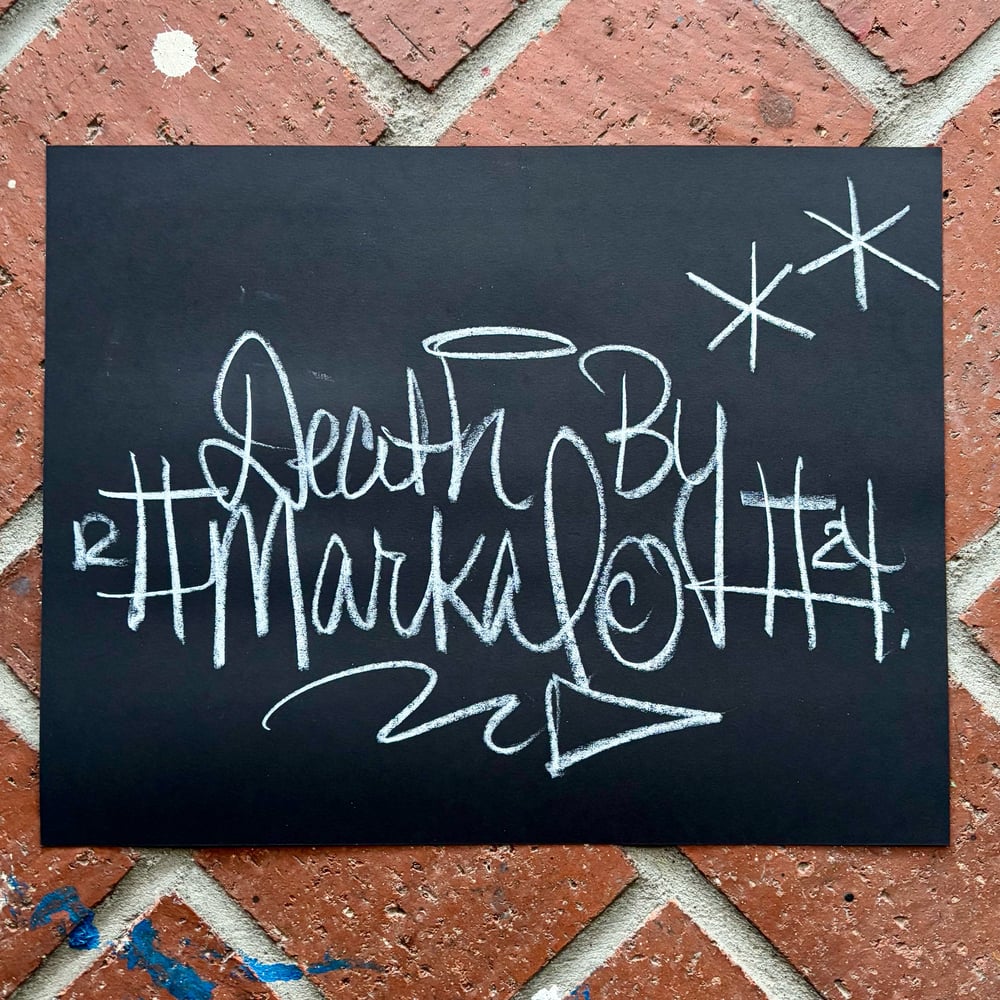 Death By
R #Markalo# 24.